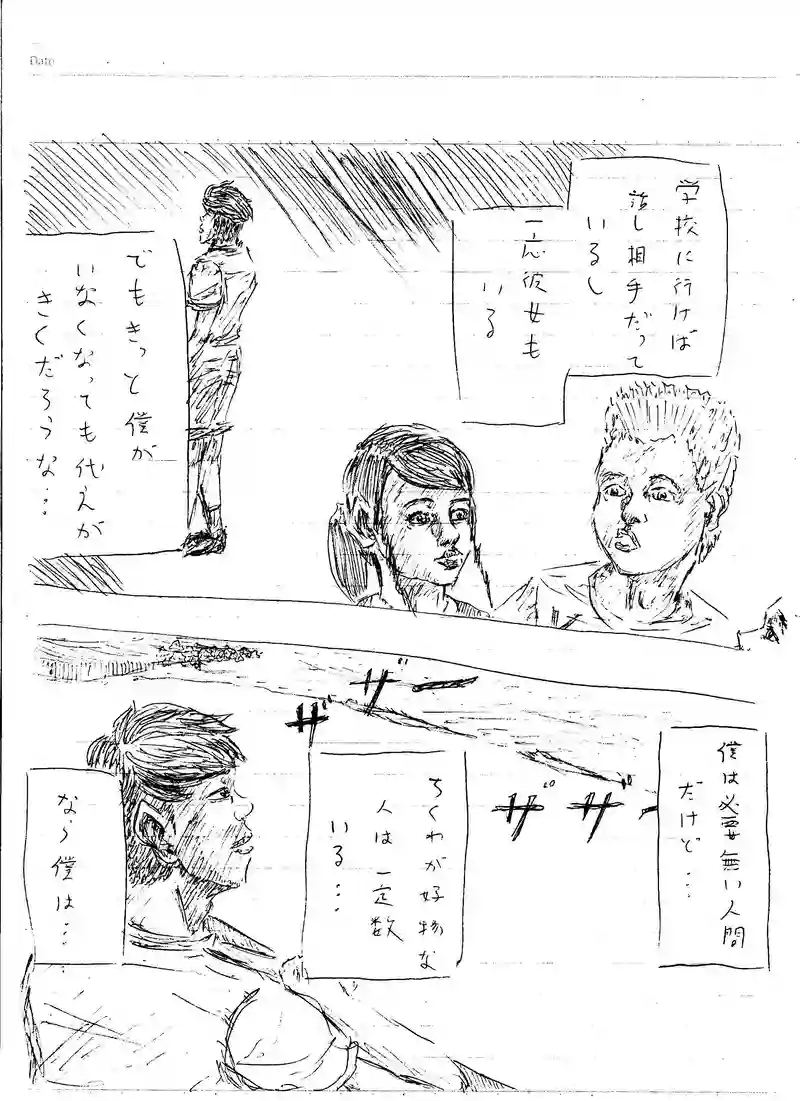 Date
学校に行けば
話し相手だって
いるし
一応彼女も
いる
でもきっと僕が
いなくなっても代えが
きくだろうな…
ザー
ザ
ザザー
僕は必要無い人間
だけど…
ちくわが好物な
人は一定数
いる…
なら僕は…